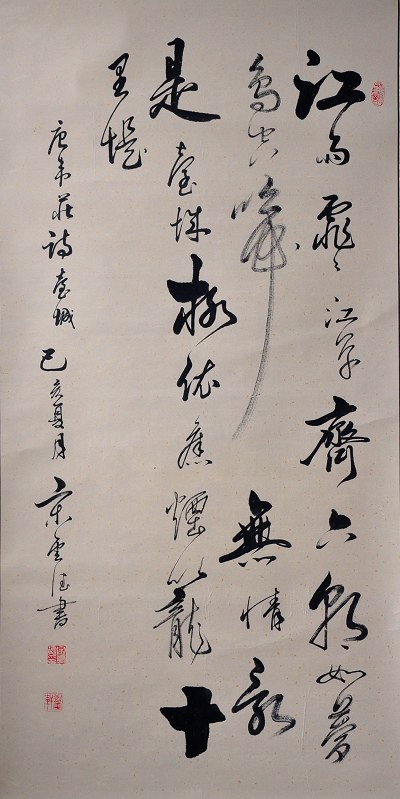 江雨霏〻江草齊六朝如夢
鳥空啼無情最
是臺城柳依舊煙籠十
里堤
唐韋莊詩臺城 己亥夏月 宋雲德書